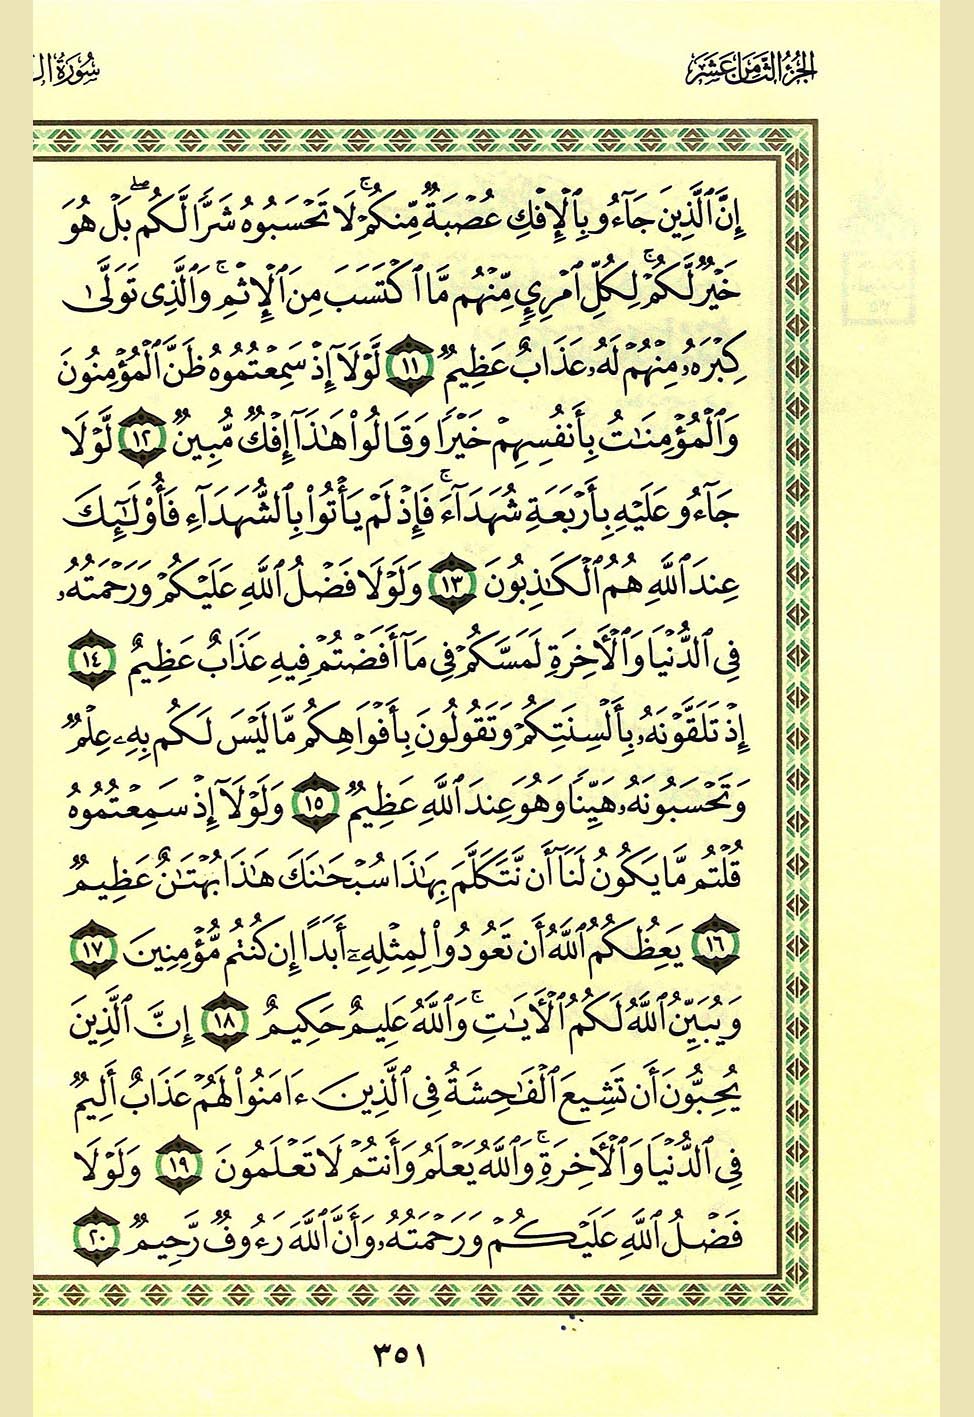 الجزء الثامن عشر
سورة ال
إِنَّ ٱلَّذِينَ جَآءُو بِٱلْإِفْكِ عُصْبَةٌ مِّنكُمْ ۚ لَا تَحْسَبُوهُ شَرًّا لَّكُم ۖ بَلْ هُوَ
خَيْرٌ لَّكُمْ ۚ لِكُلِّ ٱمْرِئٍ مِّنْهُم مَّا ٱكْتَسَبَ مِنَ ٱلْإِثْمِ ۚ وَٱلَّذِى تَوَلَّىٰ
كِبْرَهُۥ مِنْهُمْ لَهُۥ عَذَابٌ عَظِيمٌ ١١ لَّوْلَآ إِذْ سَمِعْتُمُوهُ ظَنَّ ٱلْمُؤْمِنُونَ
وَٱلْمُؤْمِنَٰتُ بِأَنفُسِهِمْ خَيْرًا وَقَالُوا۟ هَٰذَآ إِفْكٌ مُّبِينٌ ١٢ لَّوْلَا
جَآءُو عَلَيْهِ بِأَرْبَعَةِ شُهَدَآءَ ۚ فَإِذْ لَمْ يَأْتُوا۟ بِٱلشُّهَدَآءِ فَأُو۟لَٰٓئِكَ
عِندَ ٱللَّهِ هُمُ ٱلْكَٰذِبُونَ ١٣ وَلَوْلَا فَضْلُ ٱللَّهِ عَلَيْكُمْ وَرَحْمَتُهُۥ
فِى ٱلدُّنْيَا وَٱلْءَاخِرَةِ لَمَسَّكُمْ فِى مَآ أَفَضْتُمْ فِيهِ عَذَابٌ عَظِيمٌ ١٤
إِذْ تَلَقَّوْنَهُۥ بِأَلْسِنَتِكُمْ وَتَقُولُونَ بِأَفْوَاهِكُم مَّا لَيْسَ لَكُم بِهِۦ عِلْمٌ
وَتَحْسَبُونَهُۥ هَيِّنًا وَهُوَ عِندَ ٱللَّهِ عَظِيمٌ ١٥ وَلَوْلَآ إِذْ سَمِعْتُمُوهُ
قُلْتُم مَّا يَكُونُ لَنَآ أَن نَّتَكَلَّمَ بِهَٰذَا سُبْحَٰنَكَ هَٰذَا بُهْتَٰنٌ عَظِيمٌ
١٦ يَعِظُكُمُ ٱللَّهُ أَن تَعُودُوا۟ لِمِثْلِهِۦٓ أَبَدًا إِن كُنتُم مُّؤْمِنِينَ ١٧
وَيُبَيِّنُ ٱللَّهُ لَكُمُ ٱلْءَايَٰتِ ۚ وَٱللَّهُ عَلِيمٌ حَكِيمٌ ١٨ إِنَّ ٱلَّذِينَ
يُحِبُّونَ أَن تَشِيعَ ٱلْفَٰحِشَةُ فِى ٱلَّذِينَ ءَامَنُوا۟ لَهُمْ عَذَابٌ أَلِيمٌ
فِى ٱلدُّنْيَا وَٱلْءَاخِرَةِ ۚ وَٱللَّهُ يَعْلَمُ وَأَنتُمْ لَا تَعْلَمُونَ ١٩ وَلَوْلَا
فَضْلُ ٱللَّهِ عَلَيْكُمْ وَرَحْمَتُهُۥ وَأَنَّ ٱللَّهَ رَءُوفٌ رَّحِيمٌ ٢٠
٣٥١